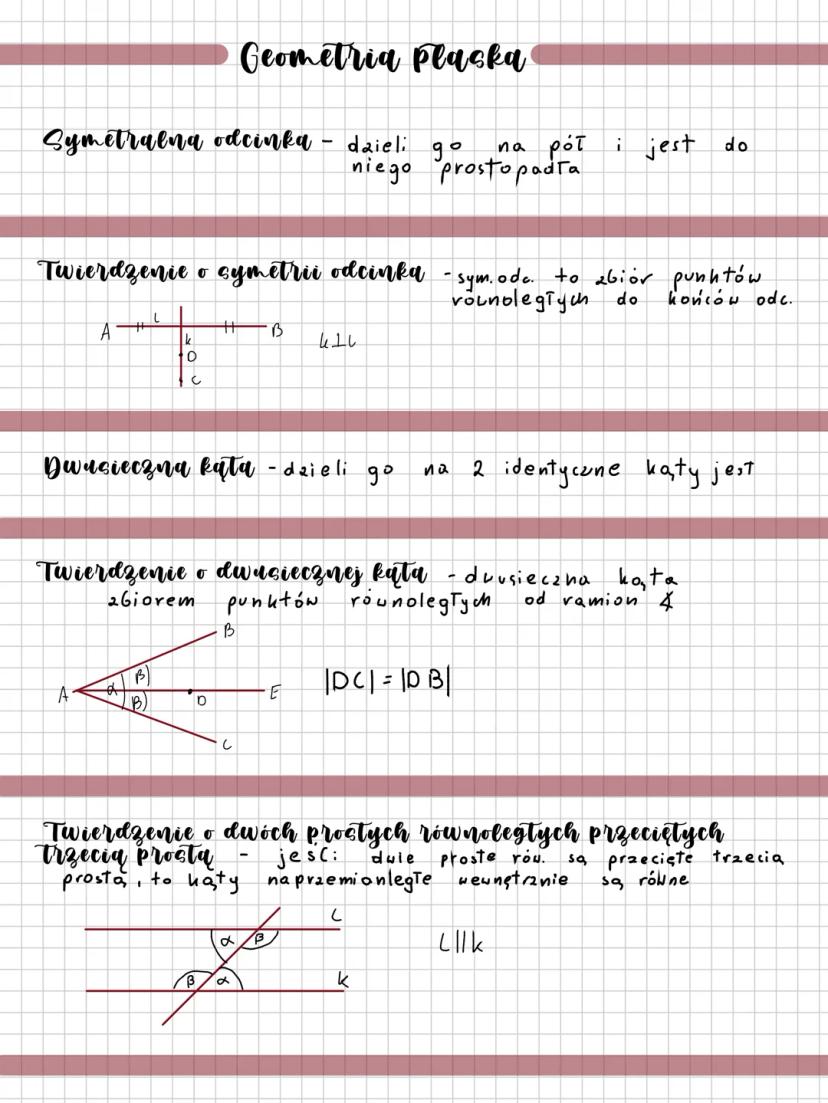 Geometria płaska
Symetralna odcinka - dzieli go na pół i jest do
niego prostopadła
Twierdzenie o symetrii odcinka - sym. odc. to zbiór punktów
równoległych do końców odc.
A L B
k
k⊥L
D
C
Dwusieczna kąta - dzieli go na 2 identyczne kąty jest
Twierdzenie o dwusiecznej kąta - dwusieczna kąta
zbiorem punktów równoległych od ramion ∡
B
A α β) D E
β)
C
|DC| = |DB|
Twierdzenie o dwóch prostych równoległych przeciętych
trzecią prostą - jeśli dwie proste rów. są przecięte trzecia
prostą, to kąty naprzemianległe wewnętrznie są równe
L
α β
L||k
β α
k